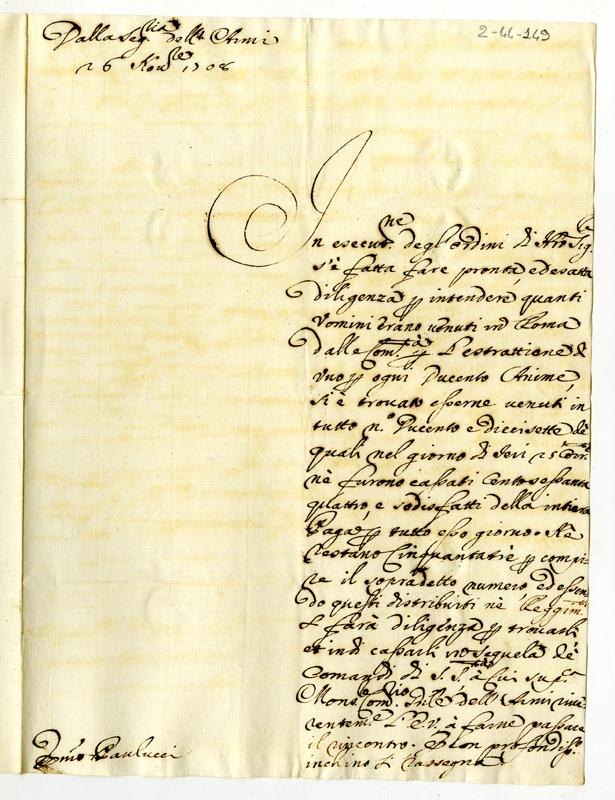 2-44-149
Dalla Seg.ria dell'Armi
26 Nov.re 1708
In esecut.ne degl'ordini di Nro Sig.re
s'è fatta fare pronta, ed esatta
diligenza p intendere quanti
Uomini erano venuti in Roma
dalle Com.tà p l'estrattione di
uno p ogni Ducento Anime,
si è trovato esserne venuti in
tutto n.o Ducento e diecisette de
quali nel giorno di Ieri 25 Corr.e
nè furono cassati Centosessanta
quattro e sodisfatti della intiera
Paga p tutto esso giorno. Nè
restano Cinquantatrè p compi-
re il sopradetto numero, ed essen-
do questi distribuiti nè Reggim.ti
si farà diligenza p trovarli
et indi cassarli in sequela de
Comandi di S. S.tà
Mons. Com.rio dell'Armi rive-
rentem.e l'E.V. à farne passare
il riscontro. E con profondiss.o
inchino si rassegna.
Paulucci